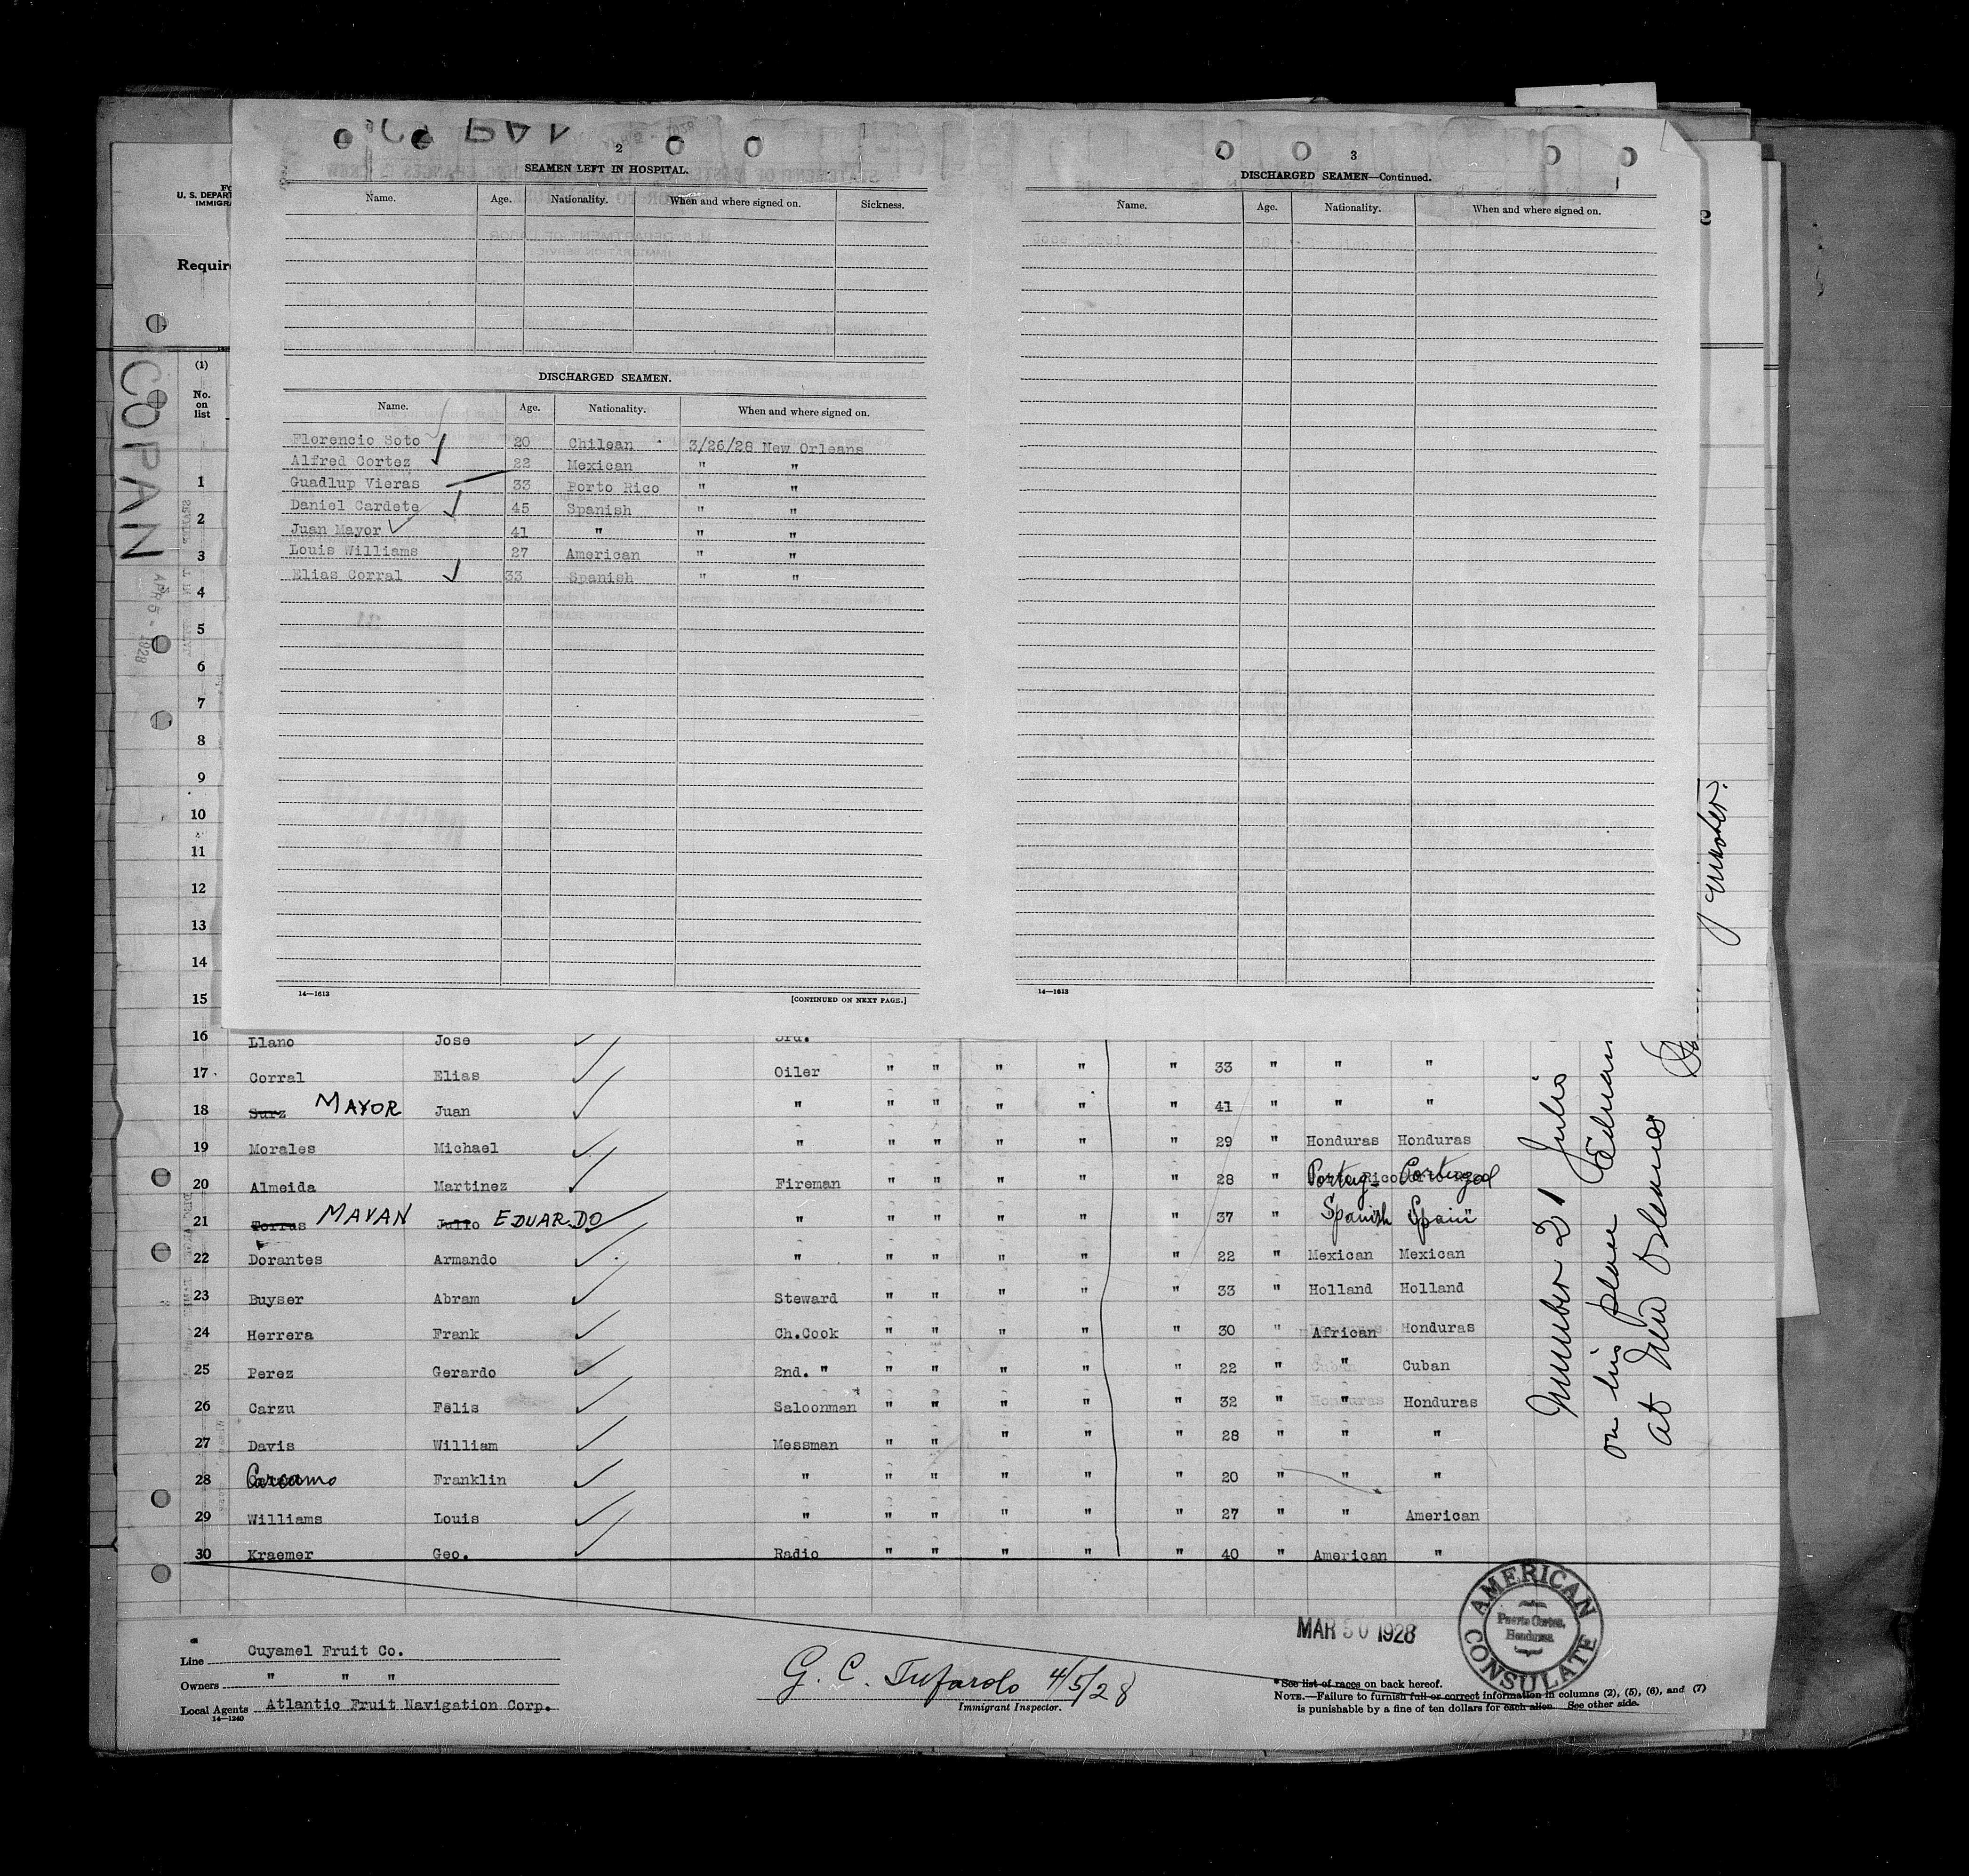 2
SEAMEN LEFT IN HOSPITAL.
Name. Age. Nationality. When and where signed on. Sickness.
DISCHARGED SEAMEN.
Name. Age. Nationality. When and where signed on.
Florencio Soto 20 Chilean 3/26/28 New Orleans
Alfred Cortez 22 Mexican " "
Guadlup Vieras 33 Porto Rico " "
Daniel Cardete 45 Spanish " "
Juan Mayor 41 " " "
Louis Williams 27 American " "
Elias Corral 33 Spanish " "
14—1613 [CONTINUED ON NEXT PAGE.]
3
DISCHARGED SEAMEN—Continued.
Name. Age. Nationality. When and where signed on.
14—1613
U. S. DEPART
IMMIGRA
Requir
COPAN
APR 5 - 1928
(1)
No.
on
list
1
2
3
4
5
6
7
8
9
10
11
12
13
14
15
16 Llano Jose 3rd.
17 Corral Elias Oiler " " " " " 33 " " "
18 Surz MAYOR Juan " " " " " " 41 " " "
19 Morales Michael " " " " " " 29 " Honduras Honduras
20 Almeida Martinez Fireman " " " " " 28 " Portug- Portugal
21 Torras MAYAN Julio EDUARDO " " " " " " 37 " Spanish Spain
22 Dorantes Armando " " " " " " 22 " Mexican Mexican
23 Buyser Abram Steward " " " " " 33 " Holland Holland
24 Herrera Frank Ch.Cook " " " " " 30 " African Honduras
25 Perez Gerardo 2nd. " " " " " " 22 " " Cuban
26 Carzu Felis Saloonman " " " " " 32 " " Honduras
27 Davis William Messman " " " " " 28 " " "
28 Carcamo Franklin " " " " " " 20 " " "
29 Williams Louis " " " " " " 27 " " American
30 Kraemer Geo. Radio " " " " " 40 " American "
Number 21 Julio
on his place Eduar
at New Orleans
Line Cuyamel Fruit Co.
Owners " " "
Local Agents Atlantic Fruit Navigation Corp.
14—1240
G. C. Tufarolo 4/5/28
Immigrant Inspector.
MAR 30 1928
AMERICAN CONSULATE
Puerto Cortes,
Honduras
*See list of races on back hereof.
NOTE.—Failure to furnish full or correct information in columns (2), (5), (6), and (7)
is punishable by a fine of ten dollars for each alien. See other side.